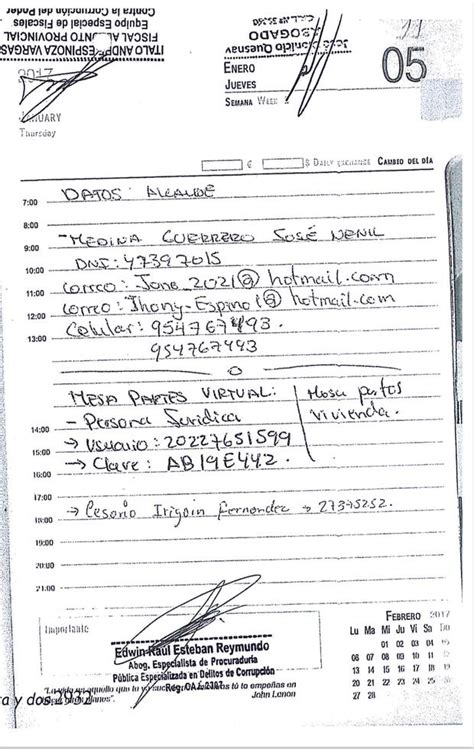 Contra la Corrupción del Poder
Equipo Especial de Fiscales
FISCAL ADJUNTO PROVINCIAL
ESPINOZA VARGAS
ABOGADO
2017
11
ENERO
JUEVES
SEMANA WEEK
05
JANUARY
Thursday
€
$ DAILY EXCHANGE CAMBIO DEL DÍA
7:00 DATOS: ALCALDE
8:00
9:00 - MEDINA GUERRERO JOSÉ NENIL
10:00 DNI: 47397015
11:00 correo: Jone_2021@hotmail.com
12:00 correo: Jhony-Espino1@hotmail.com
13:00 Celular: 954767493.
954767493
MESA PARTES VIRTUAL:
- Persona Juridica
14:00
→ Usuario: 20227651599
15:00
→ Clave: AB19E442.
16:00
vivienda.
17:00
→ Cesorio Irigoin Fernandez → 27395252.
18:00
19:00
20:00
21:00
Importante
Edwin Raúl Esteban Reymundo
Abog. Especialista de Procuraduría
Pública Especializada en Delitos de Corrupción
Reg. CAL
John Lenon
FEBRERO 2017
Lu Ma Mi Ju Vi Sa Do
01 02 03 04 05
06 07 08 09 10 11 12
13 14 15 16 17 18 19
20 21 22 23 24 25 26
27 28
y dos